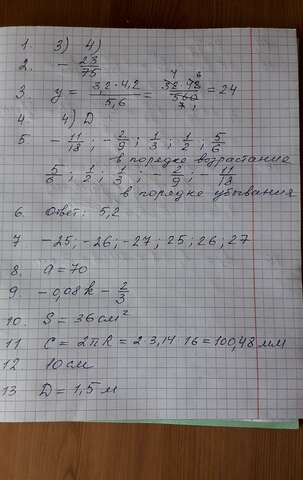 1. 3) 4)
2. - 23/75
3. y = 3,2 · 4,2 / 5,6 = = 24
4. 4) D
5 - 11/18 ; - 2/9 ; 1/3 ; 1/2 ; 5/6
в порядке возрастание
5/6 ; 1/2 ; 1/3 ; - 2/9 ; - 11/18
в порядке убывания
6. Ответ: 5,2
7 -25; -26; -27; 25; 26; 27
8. a = 70
9. - 0,08k - 2/3
10. S = 36 см²
11 C = 2πR = 2 3,14 16 = 100,48 мм
12 10 см
13 D = 1,5 м